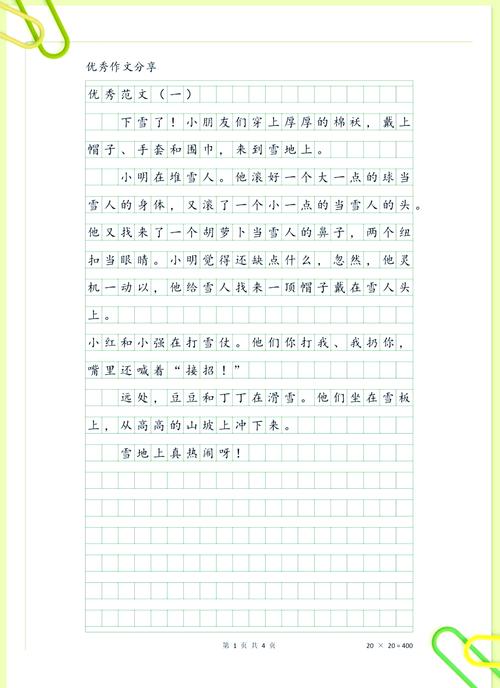 优秀作文分享
优秀范文（一）
下雪了！小朋友们穿上厚厚的棉袄，戴上
帽子、手套和围巾，来到雪地上。
小明在堆雪人。他滚好一个大一点的球当
雪人的身体，又滚了一个小一点的当雪人的头。
他又找来了一个胡萝卜当雪人的鼻子，两个纽
扣当眼睛。小明觉得还缺点什么，忽然，他灵
机一动以，他给雪人找来一顶帽子戴在雪人头
上。
小红和小强在打雪仗。他们你打我、我扔你，
嘴里还喊着“接招！”
远处，豆豆和丁丁在滑雪。他们坐在雪板
上，从高高的山坡上冲下来。
雪地上真热闹呀！
第 1 页 共 4 页
20 × 20 = 400